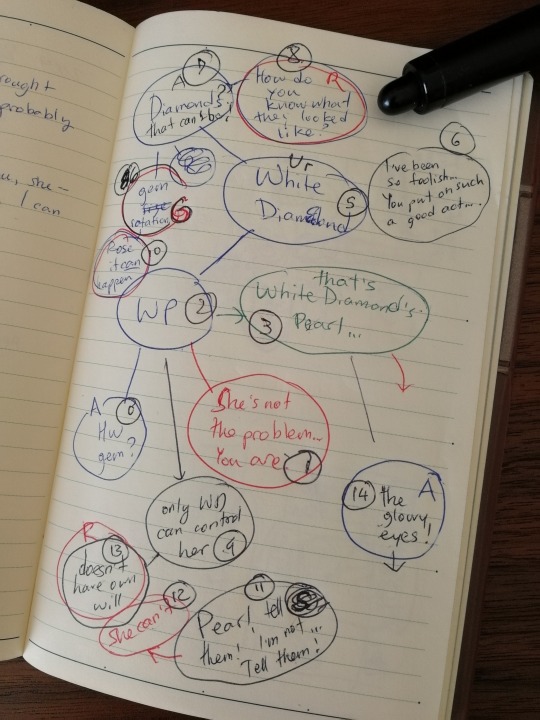 rought
probably
she -
I can
8
How do R
you
know what
they looked
like?
A 7
Diamonds??
that can't be!
6
I've been
so foolish...
You put on such
a good act...
Ur
White
Diamond 5
gem
rotation
Rose 10
it can
happen
WP 2
that's
White Diamond's
Pearl...
3
She's not
the problem...
You are 1
A 0
HW
gem?
14 the A
glowy
eyes!
only WD
can control
her 9
R
13
doesn't
have own
will
12
she can't
11
Pearl, tell
them! I'm not...
Tell them!